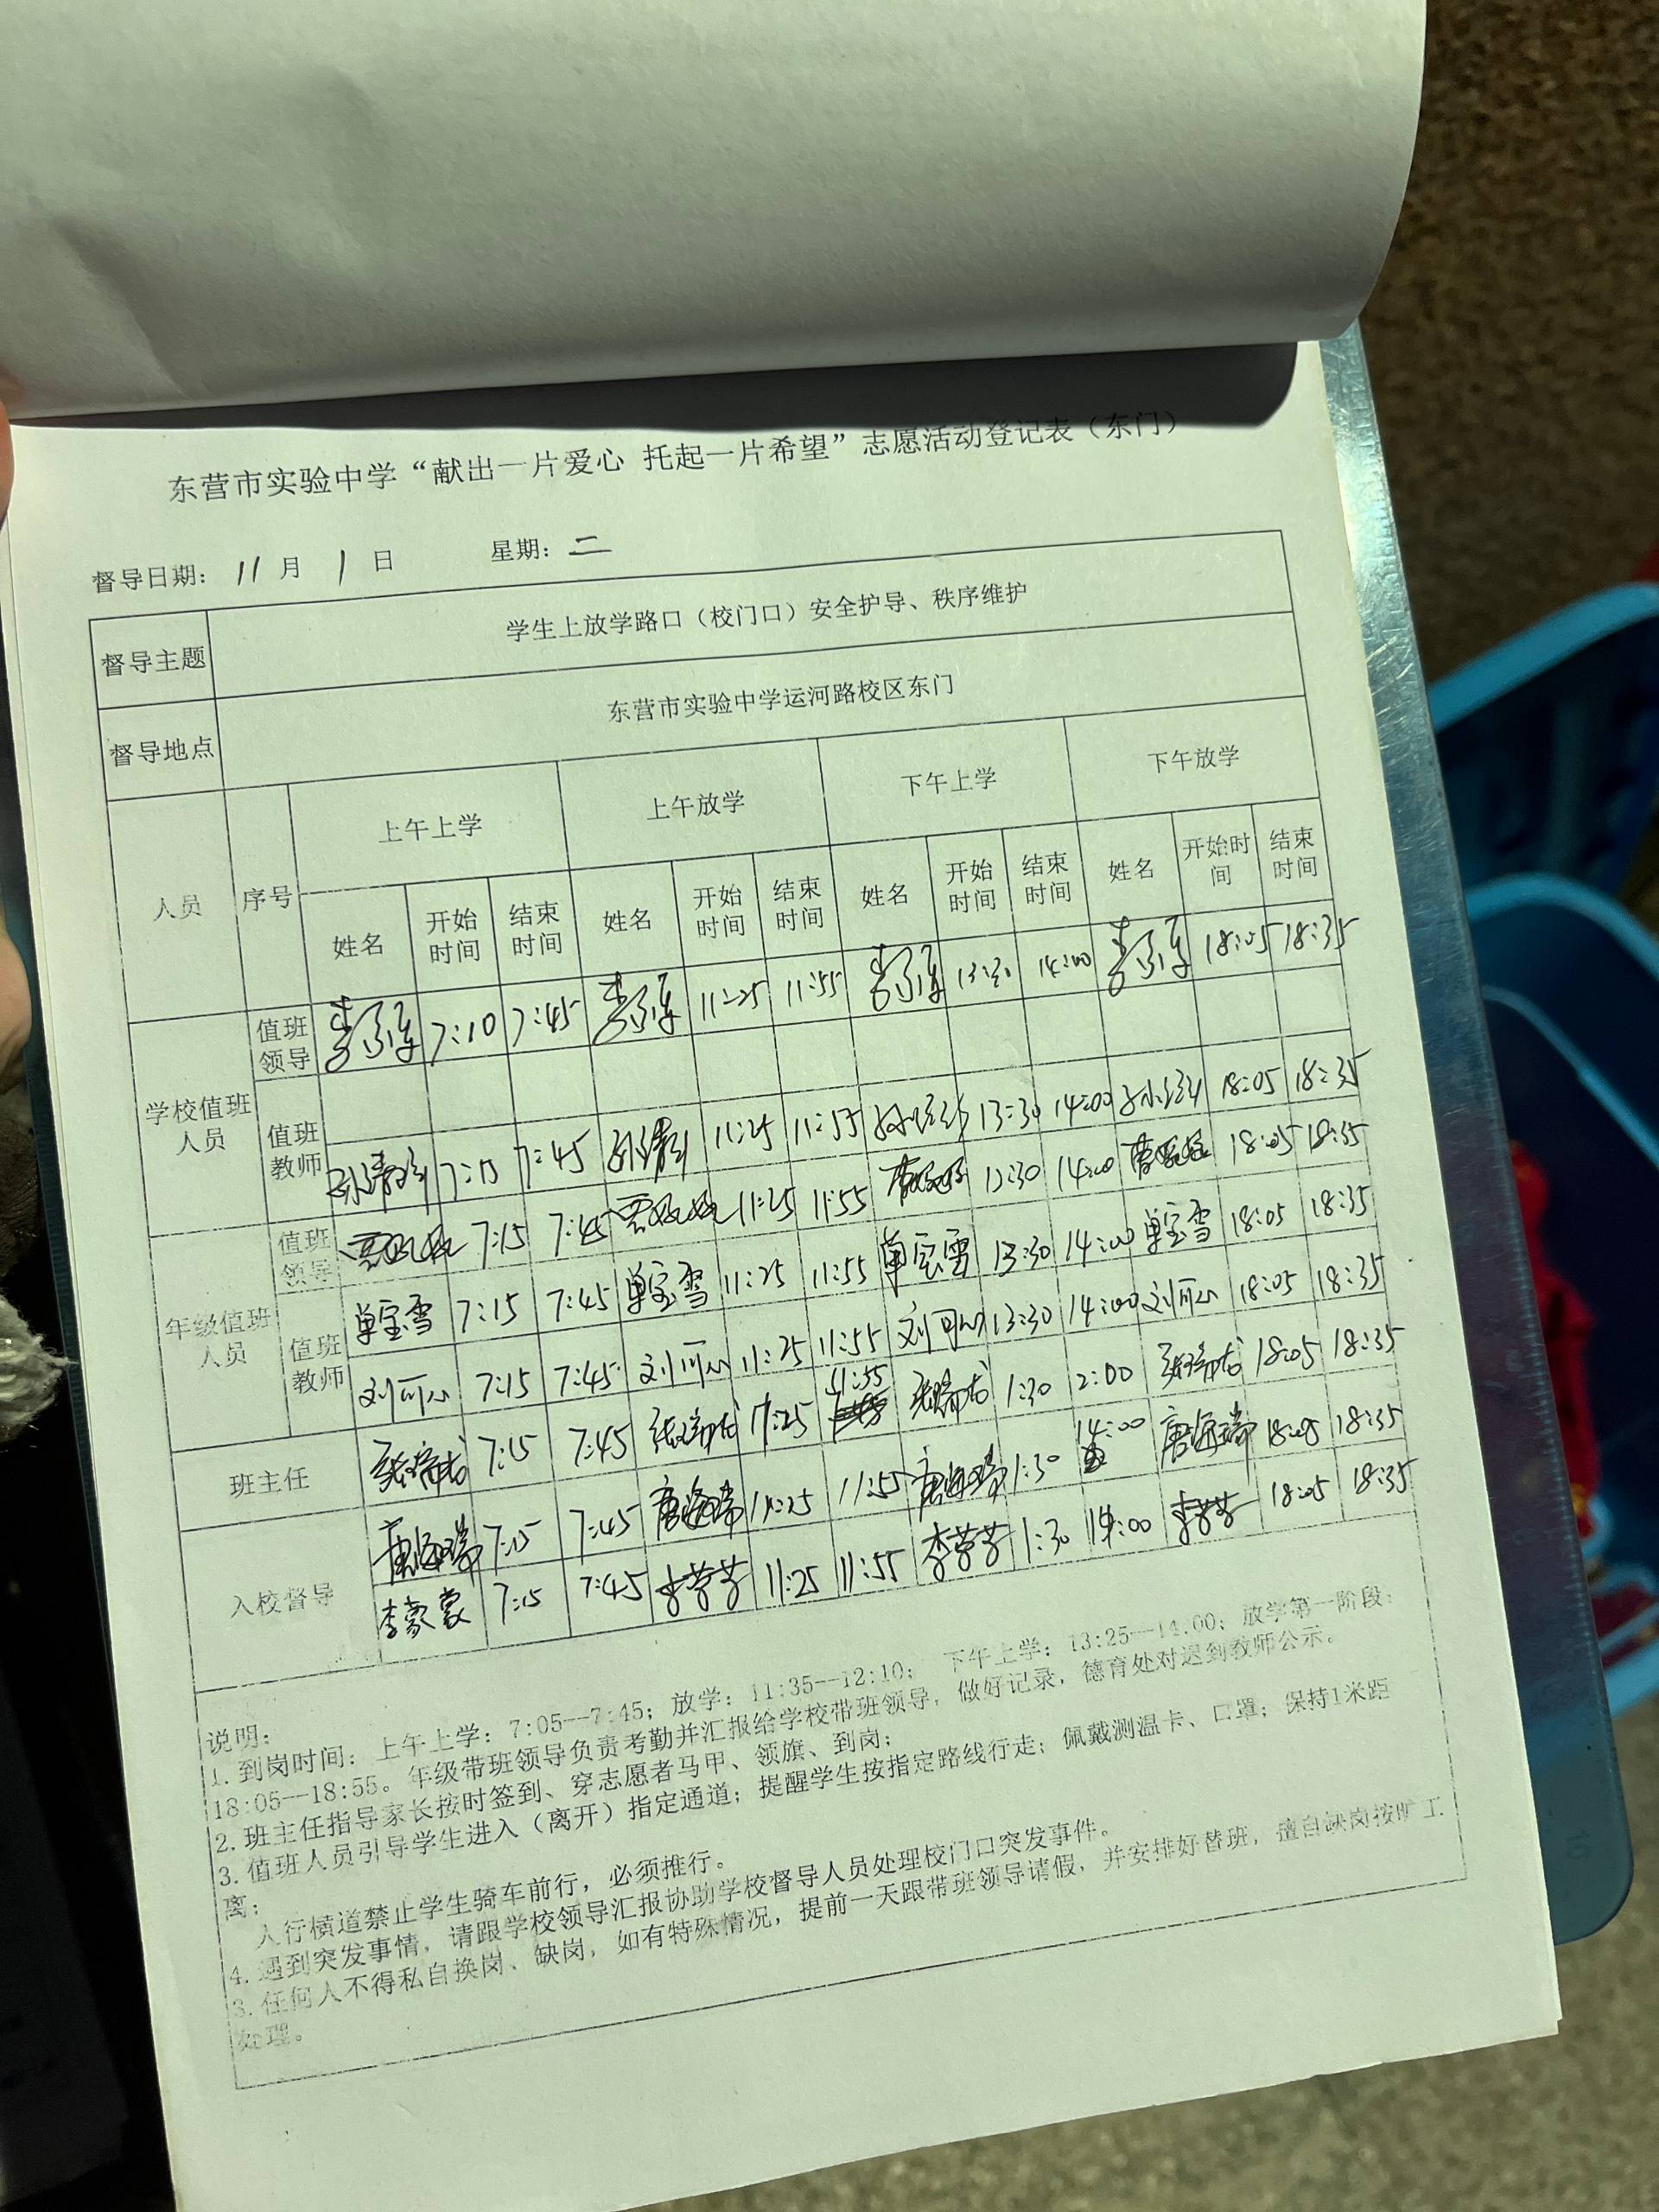 东营市实验中学“献出一片爱心 托起一片希望”志愿活动登记表（东门）
督导日期： 11 月 1 日 星期： 二
督导主题 学生上放学路口（校门口）安全护导、秩序维护
督导地点 东营市实验中学运河路校区东门
人员 序号 上午上学 上午放学 下午上学 下午放学
姓名 开始时间 结束时间 姓名 开始时间 结束时间 姓名 开始时间 结束时间 姓名 开始时间 结束时间
学校值班人员 值班领导 7:10 7:45 11:25 11:55 13:30 14:00 18:05 18:35
值班教师 7:15 7:45 11:25 11:55 13:30 14:00 18:05 18:35
年级值班人员 值班领导 7:15 7:45 11:25 11:55 13:30 14:00 18:05 18:35
值班教师 单宝雪 7:15 7:45 单宝雪 11:25 11:55 单宝雪 13:30 14:00 单宝雪 18:05 18:35
刘可心 7:15 7:45 刘可心 11:25 11:55 刘可心 13:30 14:00 刘可心 18:05 18:35
班主任 7:15 7:45 11:25 11:55 1:30 2:00 18:05 18:35
入校督导 唐海瑞 7:15 7:45 唐海瑞 11:25 11:55 唐海瑞 1:30 14:00 唐海瑞 18:05 18:35
7:15 7:45 11:25 11:55 1:30 14:00 18:05 18:35
说明：
1. 到岗时间：上午上学：7:05--7:45；放学：11:35--12:10； 下午上学：13:25--14:00；放学第一阶段：
18:05--18:55。年级带班领导负责考勤并汇报给学校带班领导，做好记录，德育处对迟到教师公示。
2. 班主任指导家长按时签到、穿志愿者马甲、领旗、到岗；
3. 值班人员引导学生进入（离开）指定通道；提醒学生按指定路线行走；佩戴测温卡、口罩；保持1米距
离；
人行横道禁止学生骑车前行，必须推行。
4. 遇到突发事情，请跟学校领导汇报协助学校督导人员处理校门口突发事件。
3. 任何人不得私自换岗、缺岗，如有特殊情况，提前一天跟带班领导请假，并安排好替班，擅自缺岗按旷工
处理。